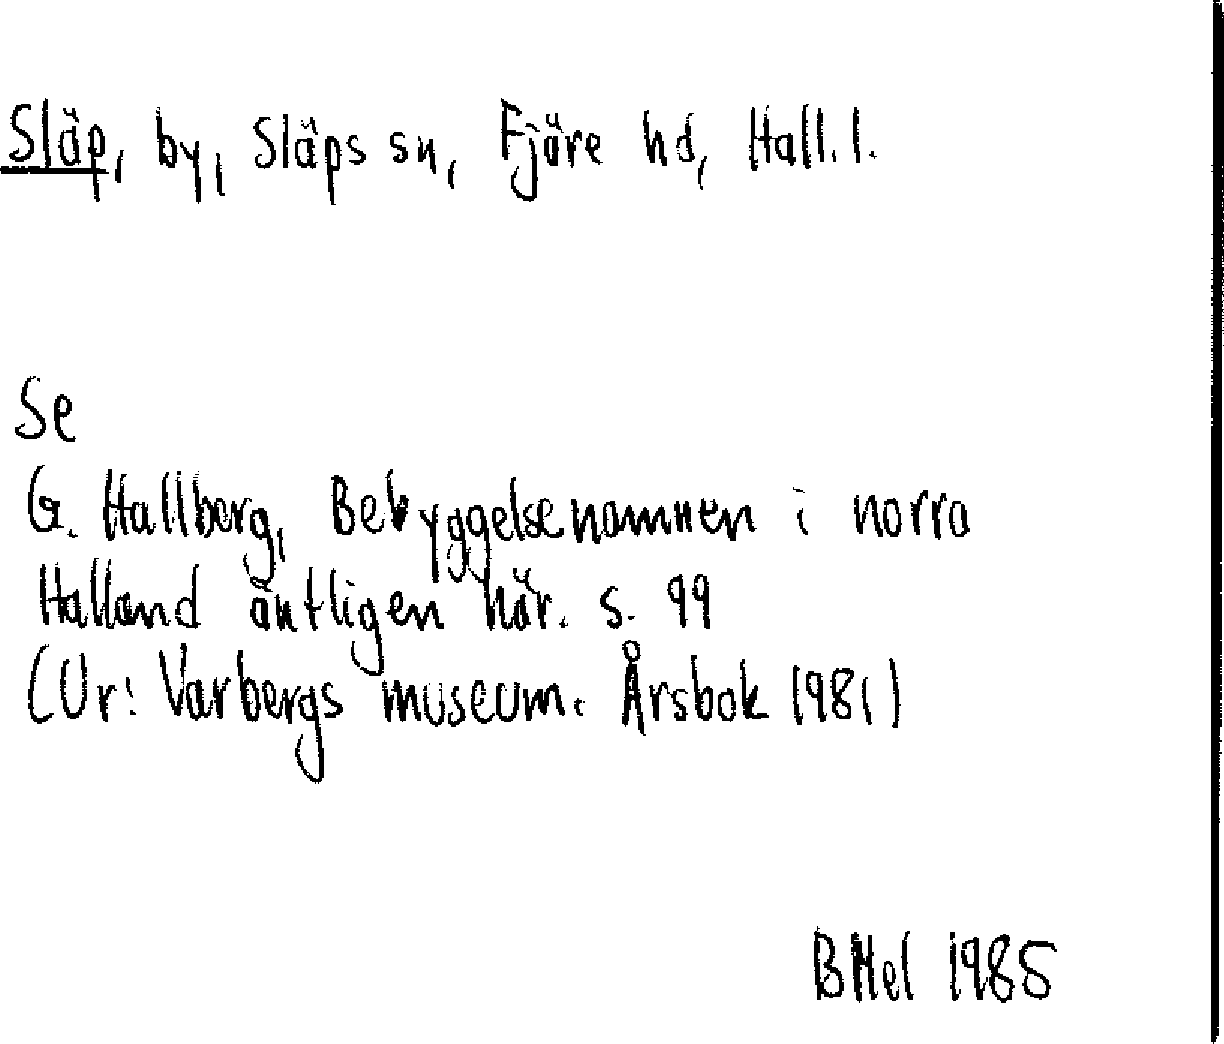 Släp, by, Släps sn, Fjäre hd, Hall. l.
Se
G. Hallberg, Bebyggelsenamnen i norra
Halland äntligen här. s. 99
(Ur: Varbergs museum. Årsbok 1981)
BMel 1985